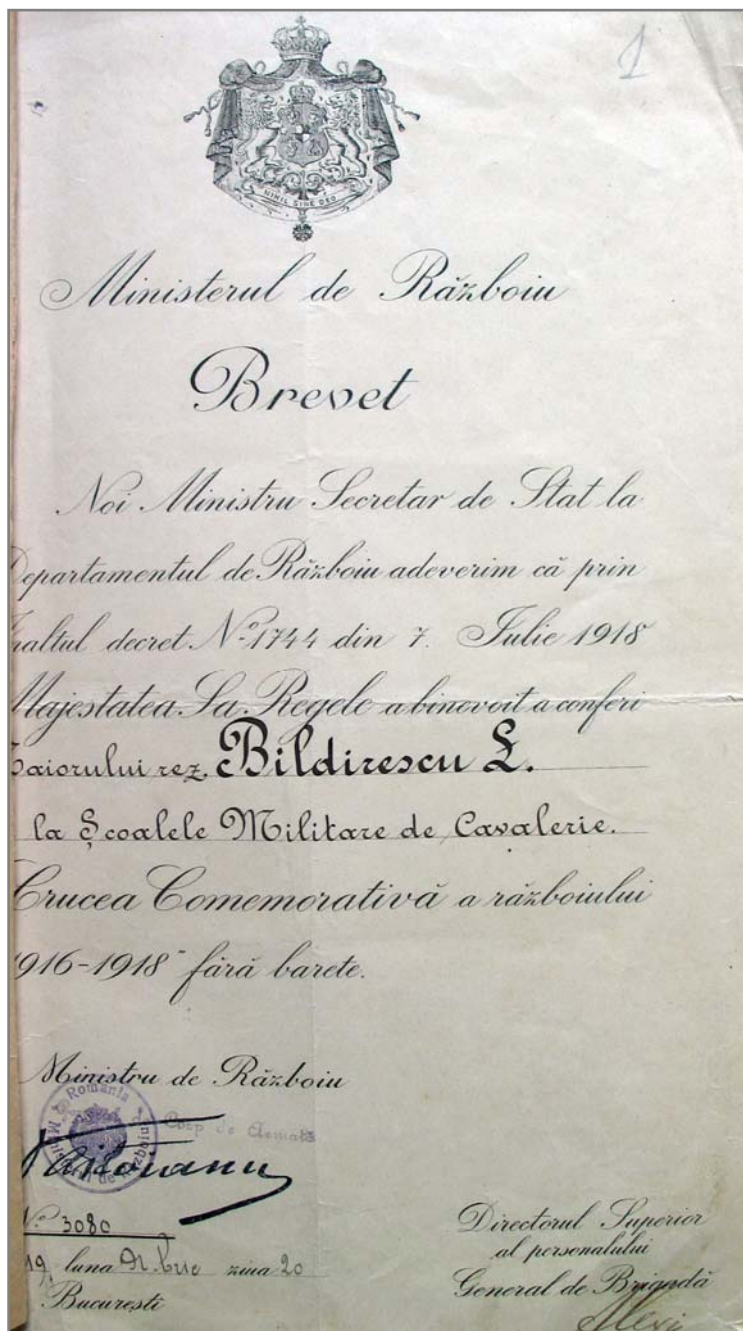 1
NIHIL SINE DEO
Ministerul de Războiu
Brevet
Noi Ministru Secretar de Stat la
Departamentul de Războiu adeverim că prin
naltul decret No. 1744 din 7. Iulie 1918
Majestatea Sa Regele a binevoit a conferi
aiorului rez. Bildirescu L.
la Școalele Militare de Cavalerie.
Crucea Comemorativă a războiului
1916-1918" fără barete.
Ministru de Războiu
România
Ministerul de Războiu
Corp de Armată
No. 3080
19 luna ziua 20
București
Directorul Superior
al personalului
General de Brigadă